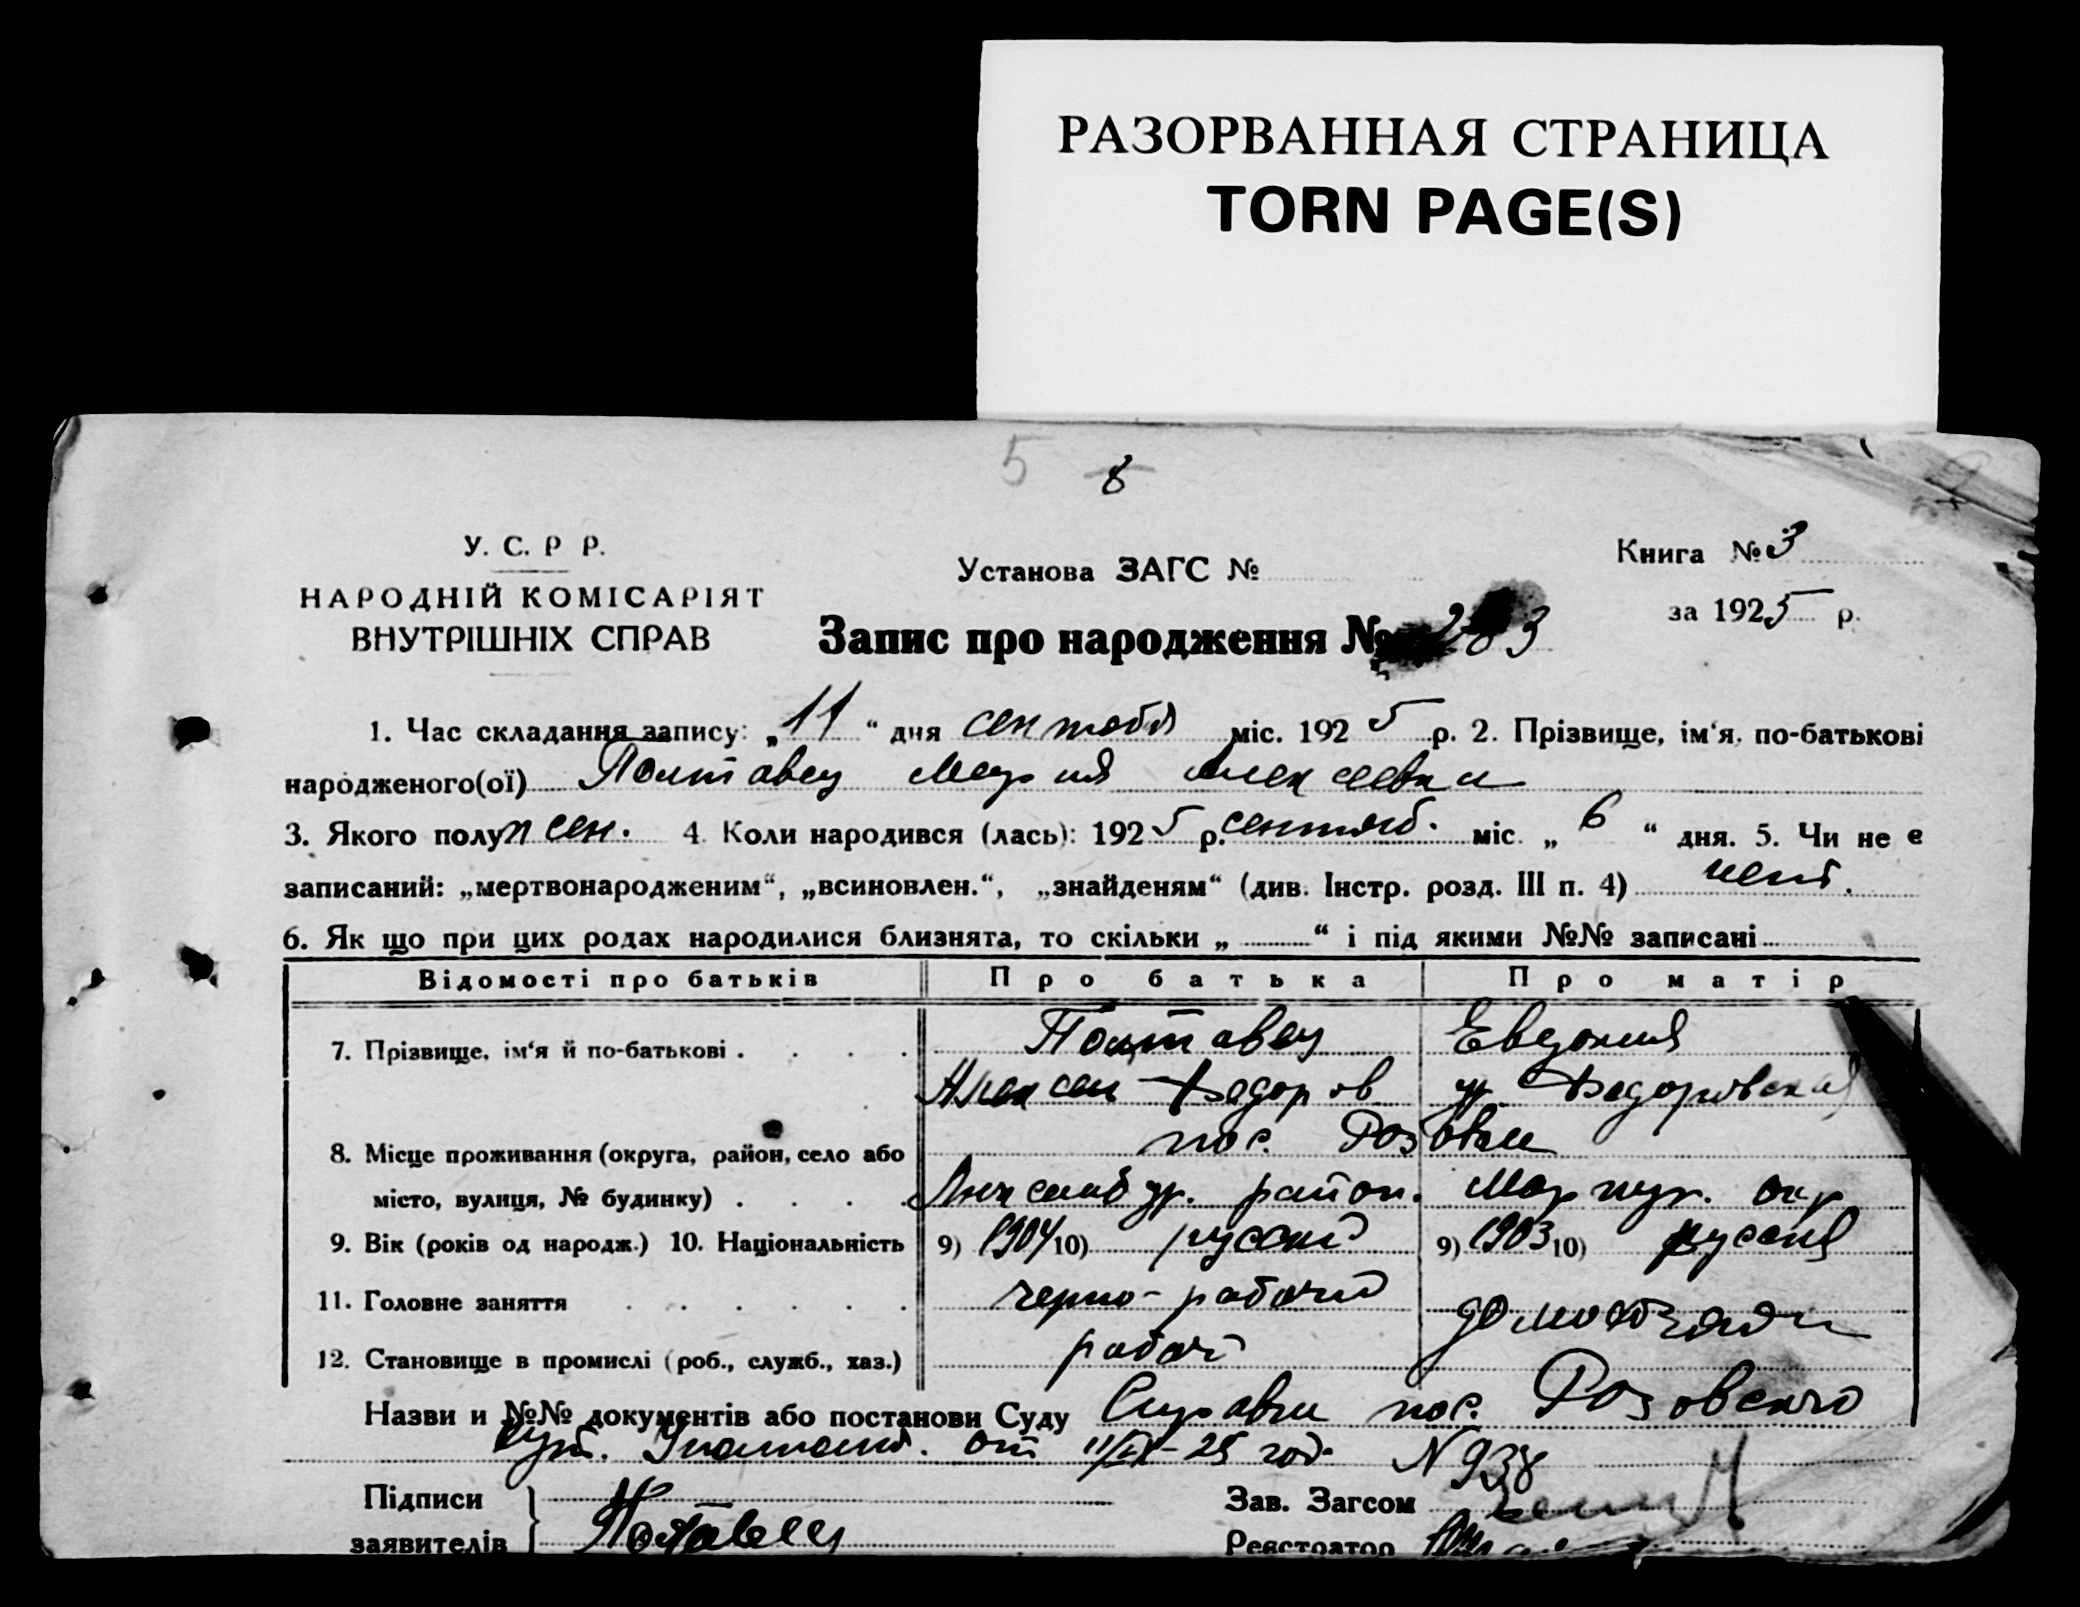 РАЗОРВАННАЯ СТРАНИЦА
TORN PAGE(S)
5 8
У. С. Р Р.
НАРОДНІЙ КОМІСАРІЯТ
ВНУТРІШНІХ СПРАВ
Установа ЗАГС №
Запис про народження № 283
Книга № 3
за 1925 р.
1. Час складання запису: „11“ дня сентября міс. 1925 р. 2. Прізвище, ім‘я, по-батькові
народженого(ої) Полтавец Мария Алексеевна
3. Якого полу жен. 4. Коли народився (лась): 1925 р. сентяб. міс. „6“ дня. 5. Чи не є
записаний: „мертвонародженим“, „всиновлен.“, „знайденям“ (див. Інстр. розд. III п. 4) нет.
6. Як що при цих родах народилися близнята, то скільки „ “ і під якими №№ записані
Відомості про батьків Про батька Про матір
7. Прізвище, ім‘я й по-батькові . . . . Полтавец Евдокия
Алексей Федоров Федоровская
пос. Розовки
8. Місце проживання (округа, район, село або
місто, вулиця, № будинку) . . . . район. Мариуп. окр
9. Вік (років од народж.) 10. Національність 9) 1904 10) русский 9) 1903 10) русская
11. Головне заняття . . . . . . черно-рабочий домохозяйки
12. Становище в промислі (роб., служб., хаз.) рабоч
Назви и №№ документів або постанови Суду Справки пос. Розовского
от 11/IX-25 год. N 938
Підписи
заявителів Полтавец
Зав. Загсом
Реєстратор